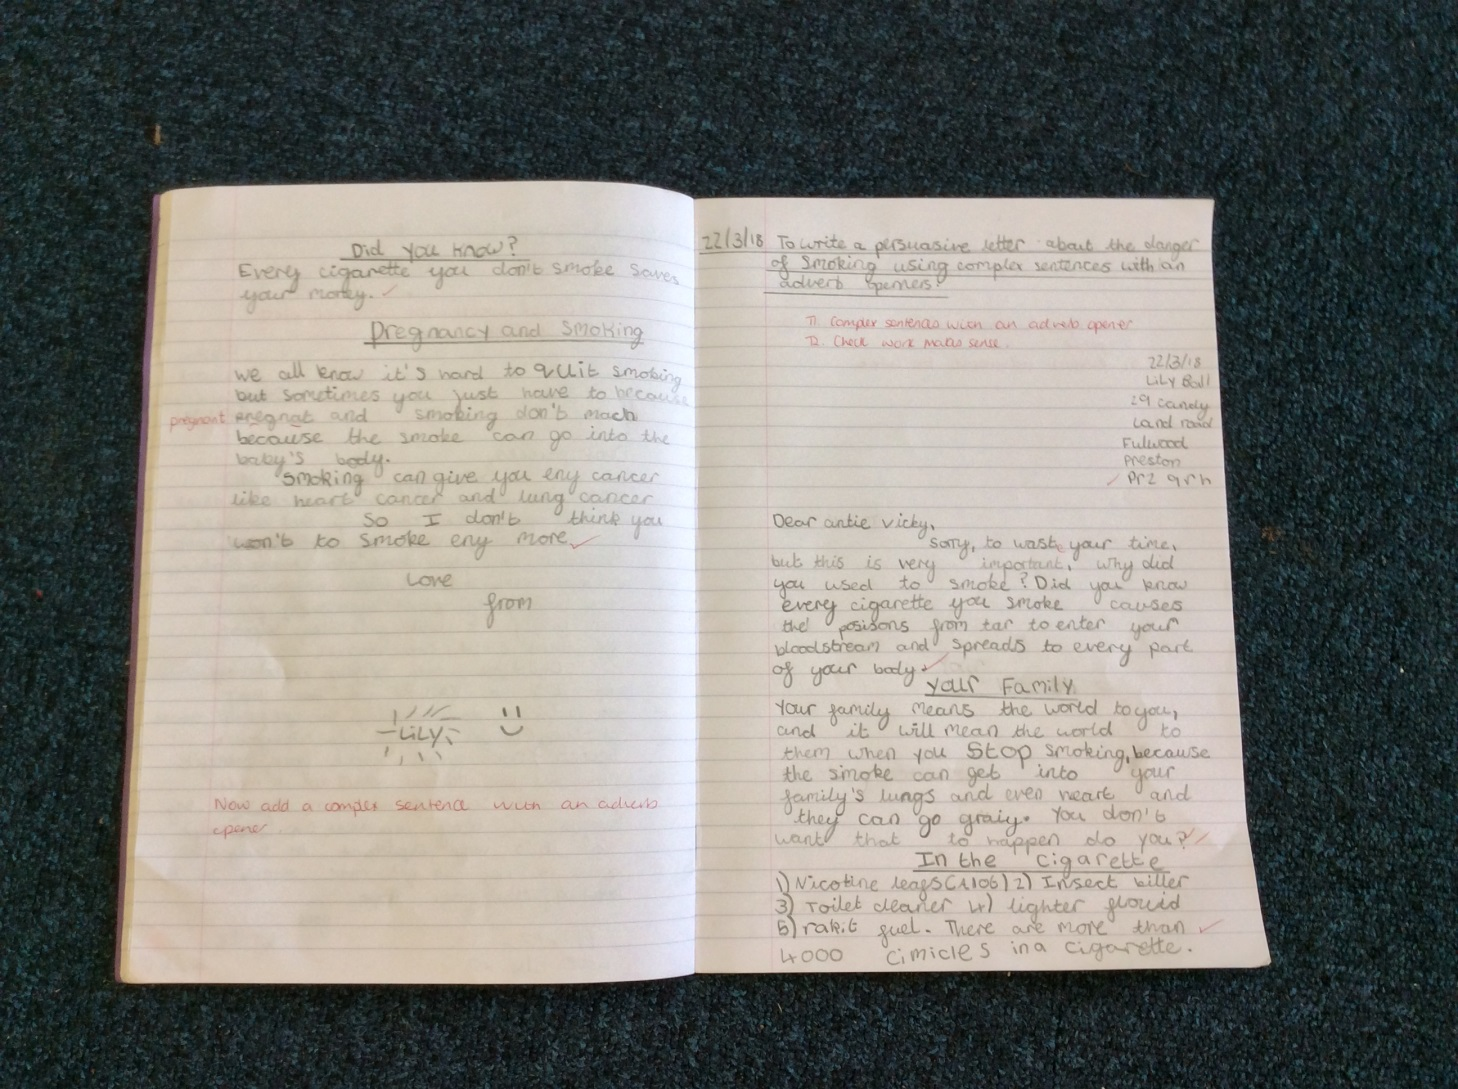 Did you know?
Every cigarette you don't smoke saves
your money.
Pregnancy and Smoking
we all know it's hard to quit smoking
but sometimes you just have to because
pregnant pregnat and smoking don't mach
because the smoke can go into the
baby's body.
Smoking can give you eny cancer
like heart cancer and lung cancer
So I don't think you
won't to smoke eny more
Love
from
LiLY
Now add a complex sentence with an adverb
opener.
22/3/18 To write a persuasive letter about the danger
of smoking using complex sentences with an
adverb openers.
T1. Complex sentences with an adverb opener
T2. Check work makes sense.
22/3/18
LiLy Ball
29 candy
Land road
Fulwood
Preston
Pr2 9rh
Dear antie Vicky,
sorry, to waste your time,
but this is very important, why did
you used to smoke? Did you know
every cigarette you smoke causes
the posisons from tar to enter your
bloodstream and spreads to every part
of your body.
Your Family
Your family means the world to you,
and it will mean the world to
them when you Stop smoking, because
the smoke can get into your
family's lungs and even heart and
they can go graiy. You don't
want that to happen do you?
In the cigarette
1) Nicotine 2) Insect killer
3) Toilet cleaner 4) lighter flowid
5) rakit fuel. There are more than
4000 cimicles in a cigarette.